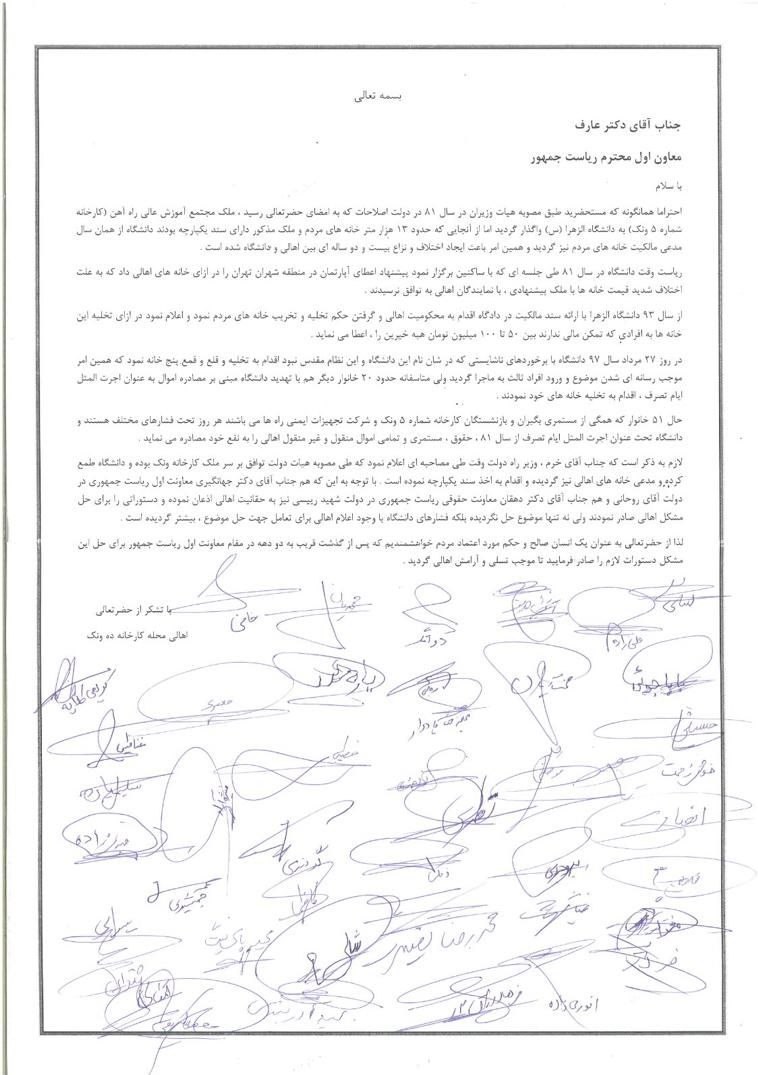 بسمه تعالی
جناب آقای دکتر عارف
معاون اول محترم ریاست جمهور
با سلام
احتراما همانگونه که مستحضرید طبق مصوبه هیات وزیران در سال ۸۱ در دولت اصلاحات که به امضای حضرتعالی رسید ، ملک مجتمع آموزش عالی راه آهن (کارخانه
شماره ۵ ونک) به دانشگاه الزهرا (س) واگذار گردید اما از آنجایی که حدود ۱۳ هزار متر خانه های مردم و ملک مذکور دارای سند یکپارچه بودند دانشگاه از همان سال
مدعی مالکیت خانه های مردم نیز گردید و همین امر باعث ایجاد اختلاف و نزاع بیست و دو ساله ای بین اهالی و دانشگاه شده است .
ریاست وقت دانشگاه در سال ۸۱ طی جلسه ای که با ساکنین برگزار نمود پیشنهاد اعطای آپارتمان در منطقه شهران تهران را در ازای خانه های اهالی داد که به علت
اختلاف شدید قیمت خانه ها با ملک پیشنهادی ، با نمایندگان اهالی به توافق نرسیدند .
از سال ۹۳ دانشگاه الزهرا با ارائه سند مالکیت در دادگاه اقدام به محکومیت اهالی و گرفتن حکم تخلیه و تخریب خانه های مردم نمود و اعلام نمود در ازای تخلیه این
خانه ها به افرادی که تمکن مالی ندارند بین ۵۰ تا ۱۰۰ میلیون تومان هبه خیرین را ، اعطا می نماید .
در روز ۲۷ مرداد سال ۹۷ دانشگاه با برخوردهای ناشایستی که در شان نام این دانشگاه و این نظام مقدس نبود اقدام به تخلیه و قلع و قمع پنج خانه نمود که همین امر
موجب رسانه ای شدن موضوع و ورود افراد ثالث به ماجرا گردید ولی متاسفانه حدود ۲۰ خانوار دیگر هم با تهدید دانشگاه مبنی بر مصادره اموال به عنوان اجرت المثل
ایام تصرف ، اقدام به تخلیه خانه های خود نمودند .
حال ۵۱ خانوار که همگی از مستمری بگیران و بازنشستگان کارخانه شماره ۵ ونک و شرکت تجهیزات ایمنی راه ها می باشند هر روز تحت فشارهای مختلف هستند و
دانشگاه تحت عنوان اجرت المثل ایام تصرف از سال ۸۱ ، حقوق ، مستمری و تمامی اموال منقول و غیر منقول اهالی را به نفع خود مصادره می نماید .
لازم به ذکر است که جناب آقای خرم ، وزیر راه دولت وقت طی مصاحبه ای اعلام نمود که طی مصوبه هیات دولت توافق بر سر ملک کارخانه ونک بوده و دانشگاه طمع
کرده و مدعی خانه های اهالی نیز گردیده و اقدام به اخذ سند یکپارچه نموده است . با توجه به این که هم جناب آقای دکتر جهانگیری معاونت اول ریاست جمهوری در
دولت آقای روحانی و هم جناب آقای دکتر دهقان معاونت حقوقی ریاست جمهوری در دولت شهید رییسی نیز به حقانیت اهالی اذعان نموده و دستوراتی را برای حل
مشکل اهالی صادر نمودند ولی نه تنها موضوع حل نگردیده بلکه فشارهای دانشگاه با وجود اعلام اهالی برای تعامل جهت حل موضوع ، بیشتر گردیده است .
لذا از حضرتعالی به عنوان یک انسان صالح و حکم مورد اعتماد مردم خواهشمندیم که پس از گذشت قریب به دو دهه در مقام معاونت اول ریاست جمهور برای حل این
مشکل دستورات لازم را صادر فرمایید تا موجب تسلی و آرامش اهالی گردید .
با تشکر از حضرتعالی
اهالی محله کارخانه ده ونک
حسینی
انصاری
سلیمان زاده
جمشیدی
محمدرضا
انوری زاده